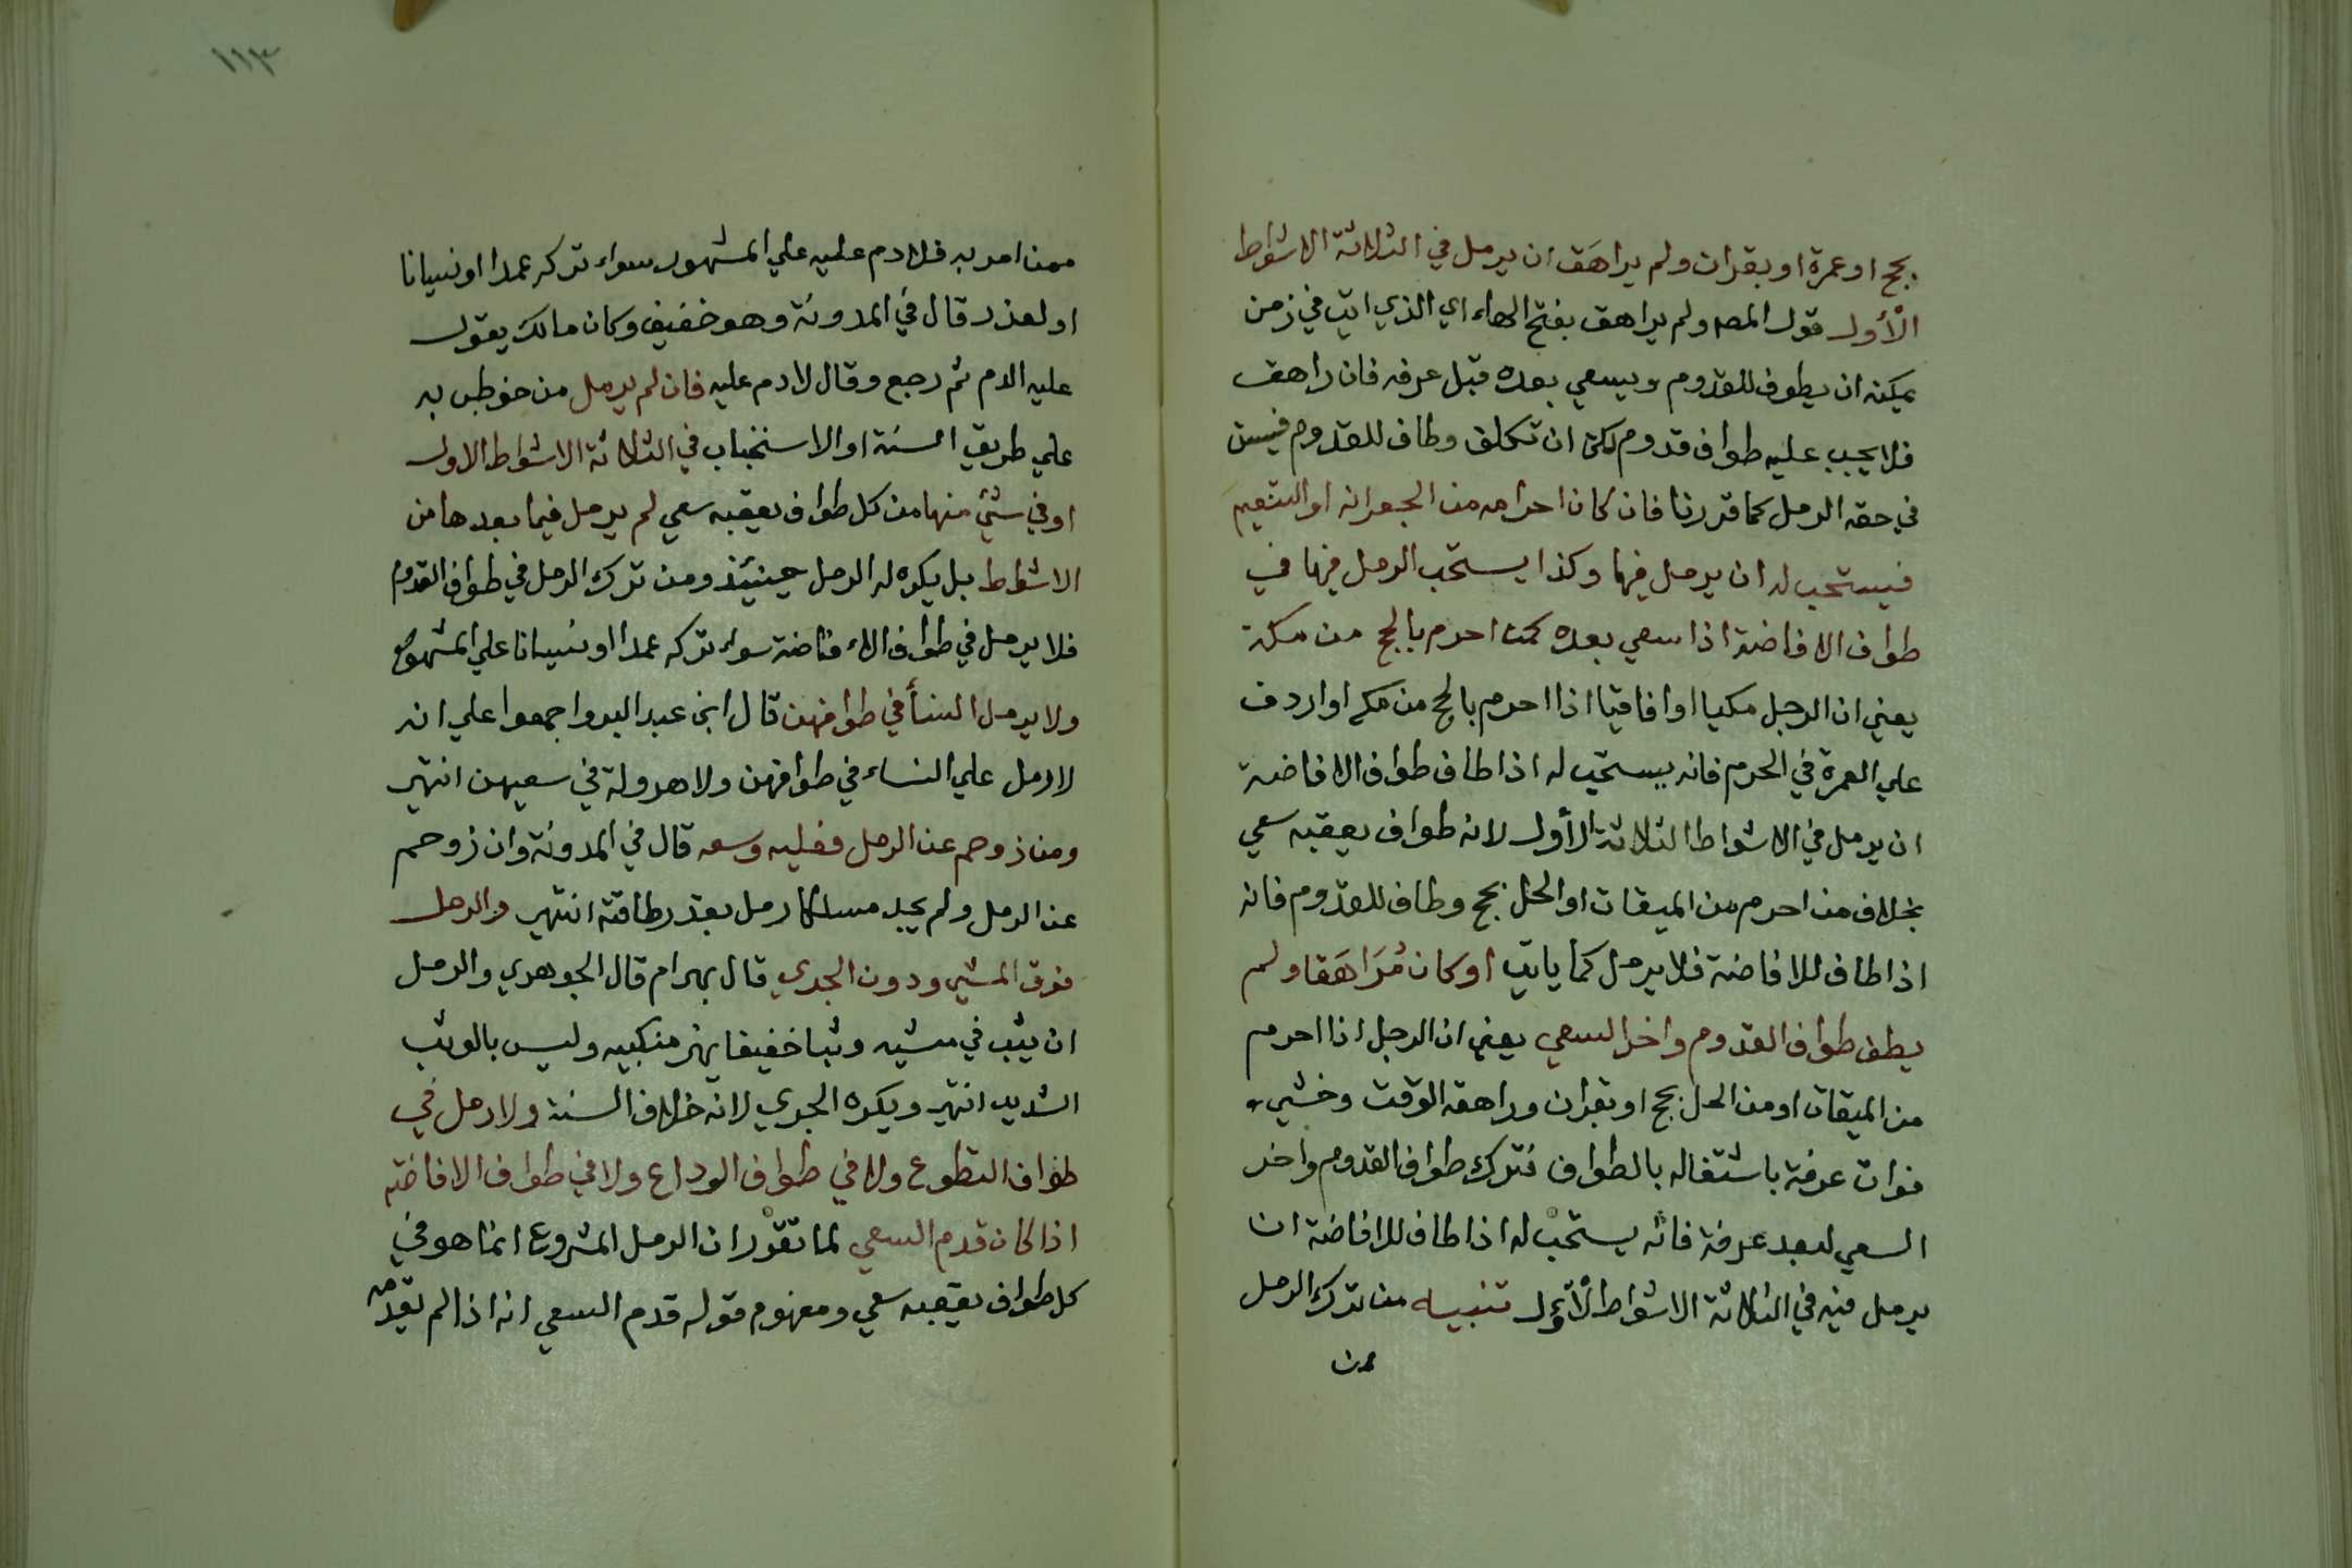 بحج او عمرة او بقران ولم يراهَق ان يرمل في الثلاثة الاشواط
الْأُول قول المصـ ولم يراهق بفتح الهاء اي الذي اتي في زمن
يمكنه ان يطوف للقدوم ويسعي بعده قبل عرفه فان راهق
فلا يجب عليه طواف قدوم لكن ان تكلف وطاف للقدوم فيسن
في حقه الرمل كما قررنا فان كان احرامه من الجعرانه او التنعيم
فيستحب له ان يرمل فيها وكذا يستحب الرمل فيها في
طواف الافاضة اذا سعي بعده كمن احرم بالحج من مكة
يعني ان الرجل مكيا او افاقيا اذا احرم بالحج من مكه او اردف
علي العمرة في الحرم فانه يستحب له اذا طاف طواف الافاضة
ان يرمل في الاشواط الثلاثة الأول لانه طواف يعقبه سعي
بخلاف من احرم من الميقات او الحل بحج وطاف للقدوم فانه
اذا طاف للافاضة فلا يرمل كما ياتي او كان مُرَاهَقا ولم
يطف طواف القدوم واخر السعي يعني ان الرجل اذا احرم
من الميقات او من الحل بحج او بقران وراهقه الوقت وخشي
فوات عرفة باشتغاله بالطواف فترك طواف القدوم واخر
السعي لبعد عرفة فانه يستحب له اذا طاف للافاضة ان
يرمل فيه في الثلاثة الاشواط الأول تنبيه من ترك الرمل
ممن
١١٣
ممن امر به فلا دم عليه علي المشهور سواء تركه عمدا او نسيانا
او لعذر قال في المدونة وهو خفيف وكان مالك يقول
عليه الدم ثم رجع وقال لا دم عليه فان لم يرمل من خوطب به
علي طريق السنة او الاستحباب في الثلاثة الاشواط الاول
او في شئ منها من كل طواف يعقبه سعي لم يرمل فيما بعدها من
الاشواط بل يكره له الرمل حينئذ ومن ترك الرمل في طواف القدوم
فلا يرمل في طواف الافاضة سواء تركه عمدا او نسيانا علي المشهور
ولا يرمل النسأ في طوافهن قال ابن عبد البر واجمعوا علي انه
لا رمل علي النساء في طوافهن ولا هرولة في سعيهن انتهي
ومن زوحم عن الرمل فعليه وسعه قال في المدونة وان زوحم
عن الرمل ولم يجد مسلكا رمل بقدر طاقته انتهي والرمل
فوق المشي ودون الجري قال بهرام قال الجوهري والرمل
ان يثب في مشيه وثبا خفيفا يهز منكبيه وليس بالوثب
الشديد انتهي ويكره الجري لانه خلاف السنة ولا رمل في
طواف التطوع ولا في طواف الوداع ولا في طواف الافاضة
اذا كان قدم السعي لما تقرر ان الرمل المشروع انما هو في
كل طواف يعقبه سعي ومفهوم قوله قدم السعي انه اذا لم يقدمه